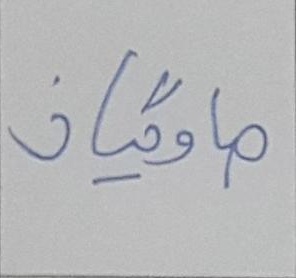 هاوگیان